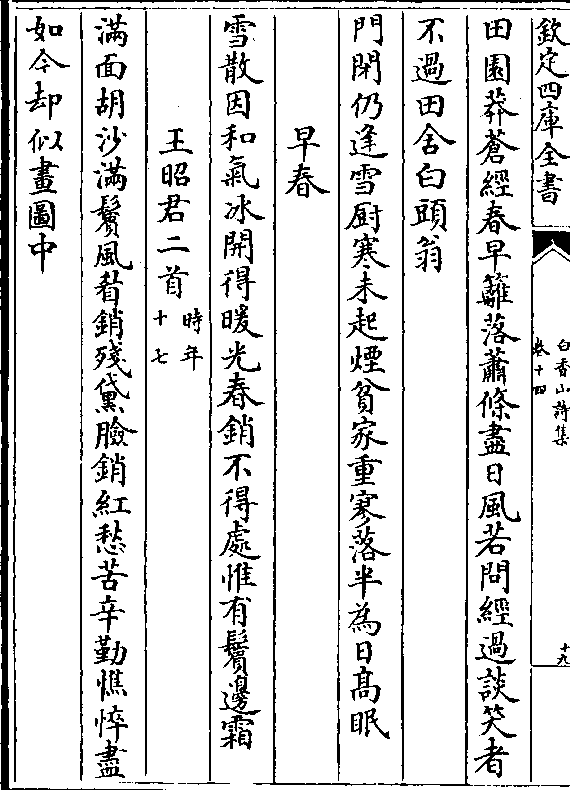 欽定四庫全書
白香山詩集
卷十四
十九
田園莽蒼經春早籬落蕭條盡日風若問經過談笑者
不過田舍白頭翁
門閉仍逢雪厨寒未起煙貧家重寥落半為日髙眠
早春
雪散因和氣冰開得暖光春銷不得處惟有鬢邊霜
王昭君二首時年十七
滿面胡沙滿鬢風眉銷殘黛臉銷紅愁苦辛勤憔悴盡
如今却似畫圖中